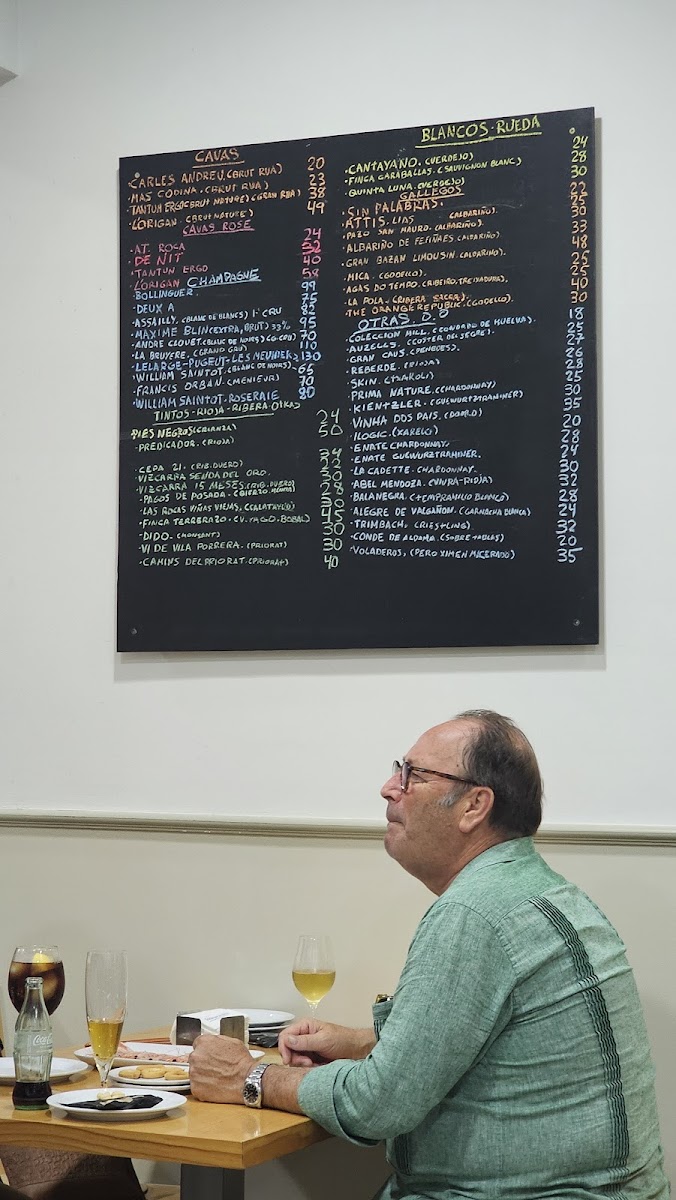 CAVAS
·CARLES ANDREU.(BRUT RVA) 20
·MAS CODINA.(BRUT RVA) 23
·TANTUM ERGO(BRUT NATURE)(GRAN RVA) 38
·L'ORIGAN.(BRUT NATURE) 49
CAVAS ROSÉ
·AT. ROCA 24
·DE NIT 32
·TANTUM ERGO 40
·L'ORIGAN 58
CHAMPAGNE
·BOLLINGUER. 99
·DEUX A 75
·ASSAILLY.(BLANC DE BLANCS) 1º CRU 82
·MAXIME BLIN(EXTRA, BRUT) 33% 95
·ANDRE CLOUET.(BLANC DE NOIRS)(G.CRU) 70
·LA BRUYERE.(GRAND CRU) 110
·LELARGE-PUGEUT-LES MEUNIERS 130
·WILLIAM SAINTOT.(BLANC DE NOIRS) 65
·FRANCIS ORBAN.(MENIEUR) 70
·WILLIAM SAINTOT.ROSERAIE 80
TINTOS-RIOJA-RIBERA OTRAS
PIES NEGROS(CRIANZA) 24
·PREDICADOR.(RIOJA) 20
·CEPA 21.(RIB.DUERO) 34
·VIZCARRA SENDA DEL ORO. 22
·VIZCARRA 15 MESES.(RIB.DUERO) 30
·PAGOS DE POSADA.(BIERZO.MENCIA) 28
·LAS ROCAS VIÑAS VIEJAS.(CALATAYUD) 30
·FINCA TERRERAZO.(V.PAGO.BOBAL) 45
·DIDO.(MONSANT) 30
·VI DE VILA PORRERA.(PRIORAT) 30
·CAMINS DEL PRIORAT.(PRIORAT) 40
BLANCOS-RUEDA
·CANTAYANO.(VERDEJO) 24
·FINCA CARABALLAS.(SAUVIGNON BLANC) 28
·QUINTA LUNA.(VERDEJO) 30
GALLEGOS
·SIN PALABRAS. 22
·ATTIS.LIAS (ALBARIÑO). 25
·PAZO SAN MAURO.(ALBARIÑO). 30
·ALBARIÑO DE FEFIÑAES (ALBARIÑO). 33
·GRAN BAZAN LIMOUSIN.(ALBARIÑO). 48
·MICA.(GODELLO). 25
·AGAS DO TEMPO.(RIBEIRO, TREIXADURA). 25
·LA POLA.(RIBERA SACRA). 40
·THE ORANGE REPUBLIC.(GODELLO). 30
OTRAS. D.O
·COLECCION HILL.(CONDADO DE HUELVA). 18
·AUZELLS.(COSTER DEL SEGRE). 25
·GRAN CAUS.(PENEDES). 27
·REBERDE.(RIOJA) 26
·SKIN.(TXAKOLI) 28
·PRIMA NATURE.(CHARDONNAY) 25
·KIENTZLER.(GUEWÜRTZTRAMINER) 30
·VINHA DOS PAIS.(DOURO) 35
·ILOGIC.(XARELO) 20
·ENATE CHARDONNAY. 28
·ENATE GUEWURZTRAMINER. 24
·LA CADETTE. CHARDONNAY 30
·ABEL MENDOZA.(VIURA-RIOJA) 32
·BALANEGRA.(TEMPRANILLO BLANCO) 28
·ALEGRE DE VALGAÑON.(GARNACHA BLANCA) 24
·TRIMBACH.(RIESTLING) 32
·CONDE DE ALDAMA.(SOBRE TABLAS) 20
·VOLADEROS,(PERO XIMEN MACERADO) 35